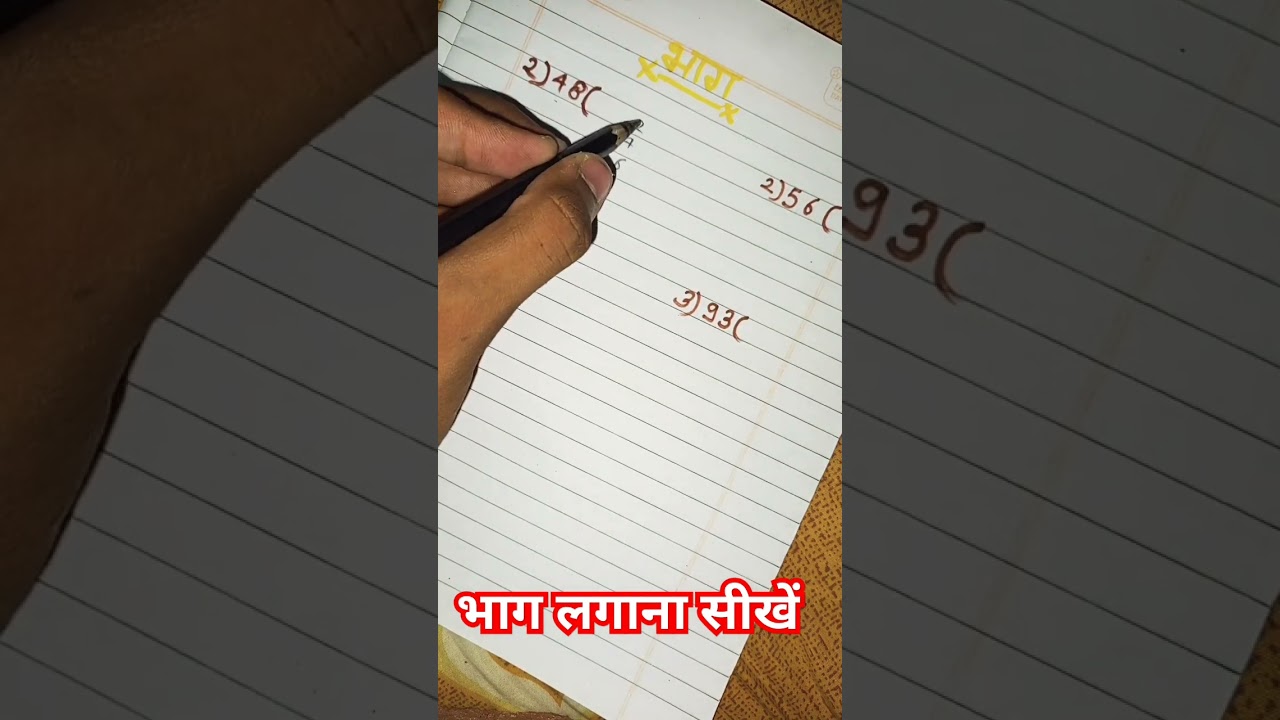 भाग
2)48(
2)56(
3)93(
93(
भाग लगाना सीखें